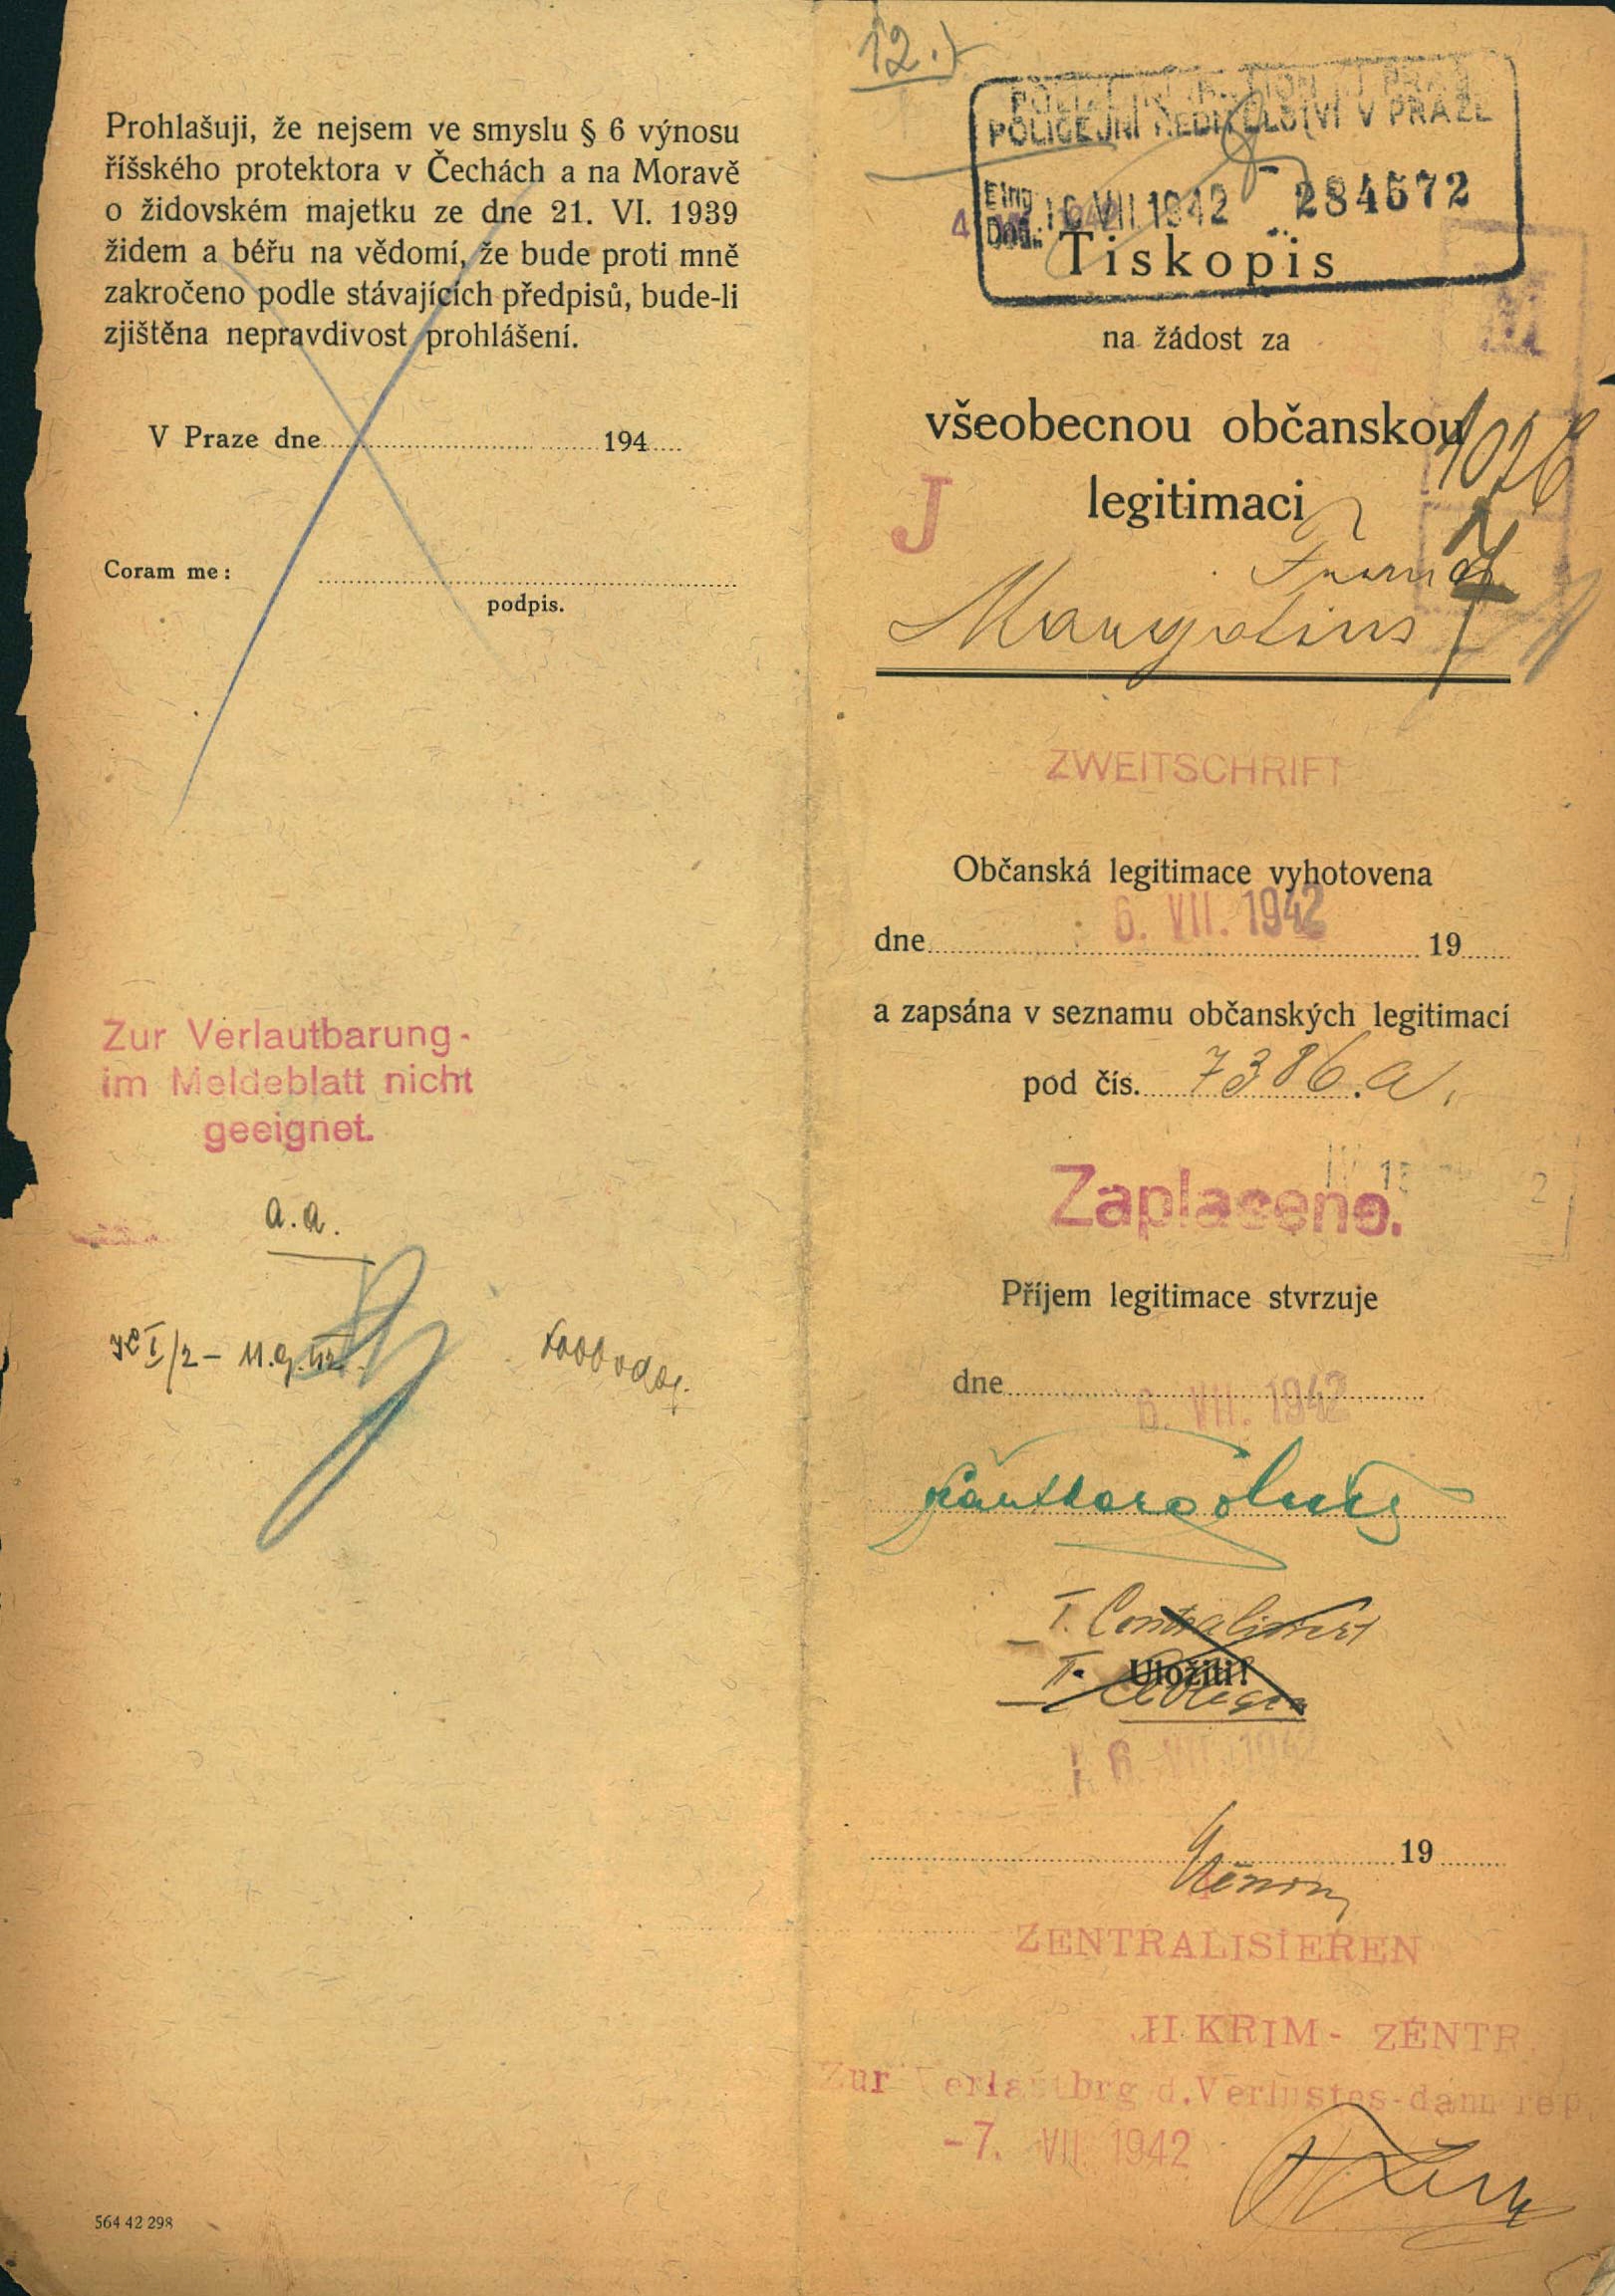 Prohlašuji, že nejsem ve smyslu § 6 výnosu
říšského protektora v Čechách a na Moravě
o židovském majetku ze dne 21. VI. 1939
židem a béřu na vědomí, že bude proti mně
zakročeno podle stávajících předpisů, bude-li
zjištěna nepravdivost prohlášení.
V Praze dne 194
Coram me:
podpis.
Zur Verlautbarung-
im Meldeblatt nicht
geeignet.
a.a.
I/2 - 11.9.42.
564 42 298
12.)
POLICEJNÍ ŘEDITELSTVÍ V PRAZE
Eing.
Doš. 16. VII. 1942 284572
Tiskopis
na žádost za
všeobecnou občanskou
legitimaci
J
Margolius
ZWEITSCHRIFT
Občanská legitimace vyhotovena
dne 6. VII. 1942 19
a zapsána v seznamu občanských legitimací
pod čís. 7386.a.
Zaplaceno.
Příjem legitimace stvrzuje
dne 6. VII. 1942
I.
II. Uložiti!
16. VII. 1942
19
ZENTRALISIEREN
II KRIM- ZENTR.
Zur Verlautbrg d. Verlustes-dann rep.
-7. VII. 1942